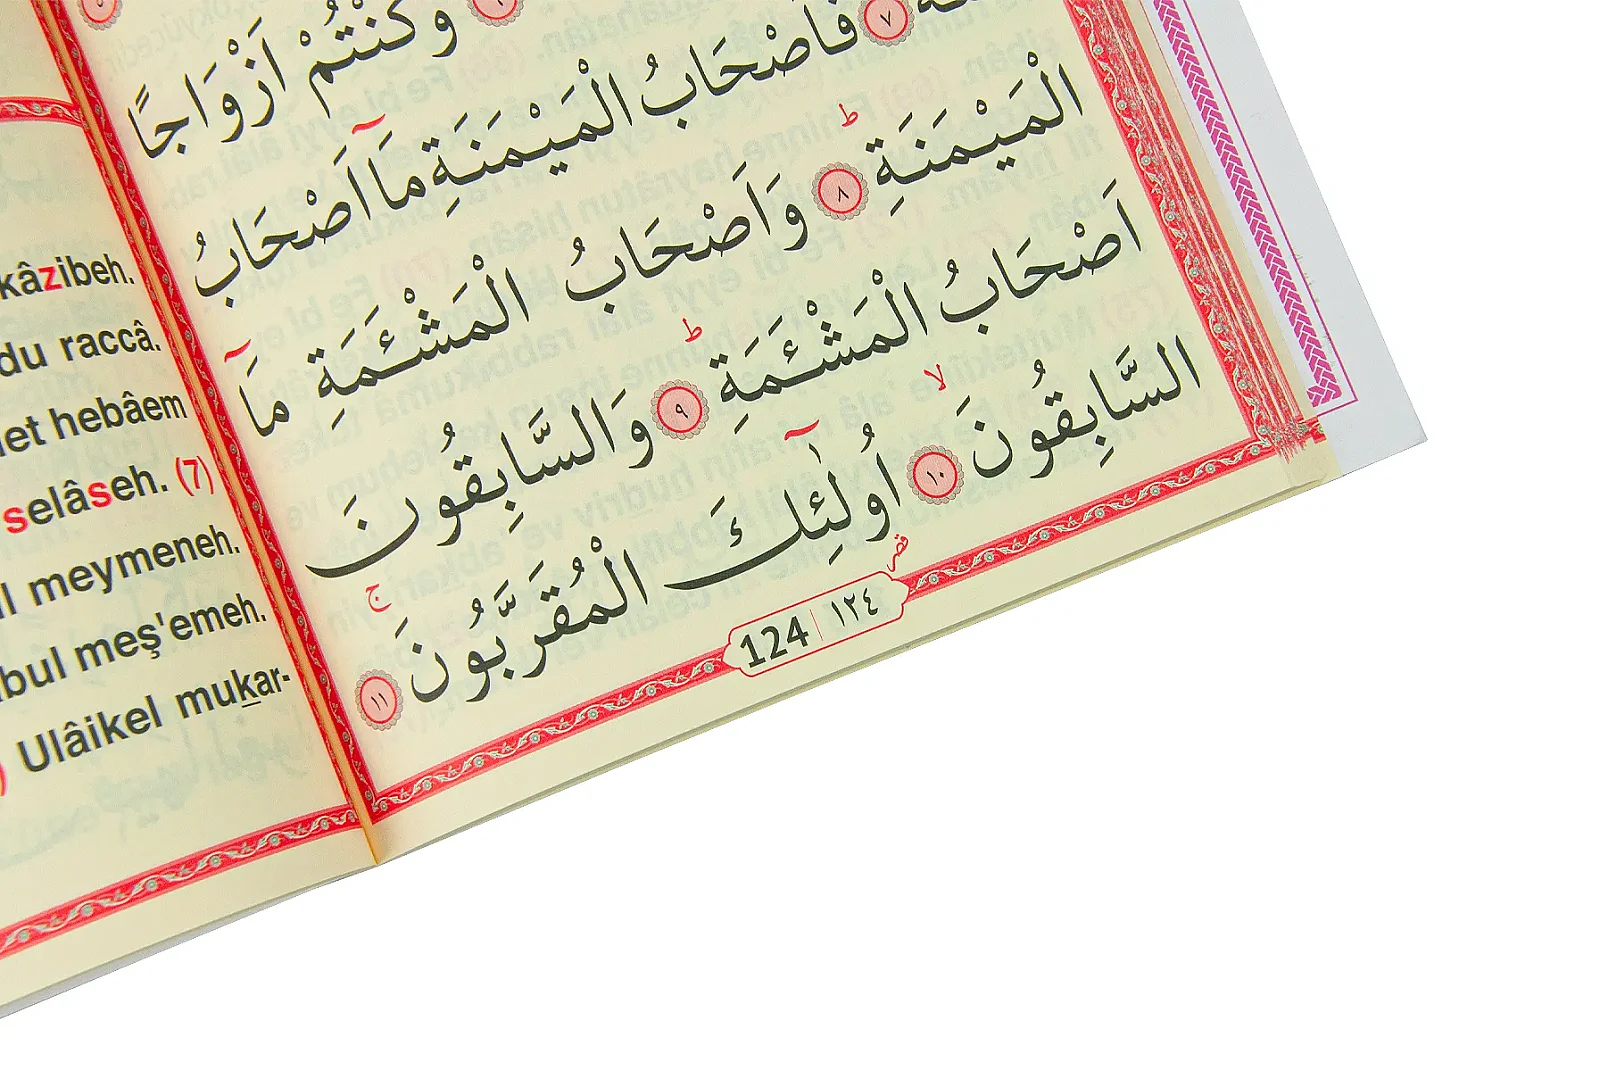 وَكُنْتُمْ اَزْوَاجًا
٧ فَاَصْحَابُ الْمَيْمَنَةِ مَٓا اَصْحَابُ
الْمَيْمَنَةِۜ ٨ وَاَصْحَابُ الْمَشْـَٔمَةِ مَٓا
اَصْحَابُ الْمَشْـَٔمَةِۜ ٩ وَالسَّابِقُونَ
السَّابِقُونَۙ ١٠ اُو۬لٰٓئِكَ الْمُقَرَّبُونَۚ ١١
124 ١٢٤
kâzibeh.
du raccâ.
et hebâem
selâseh. (7)
l meymeneh.
bul meş'emeh.
) Ulâikel mukar-